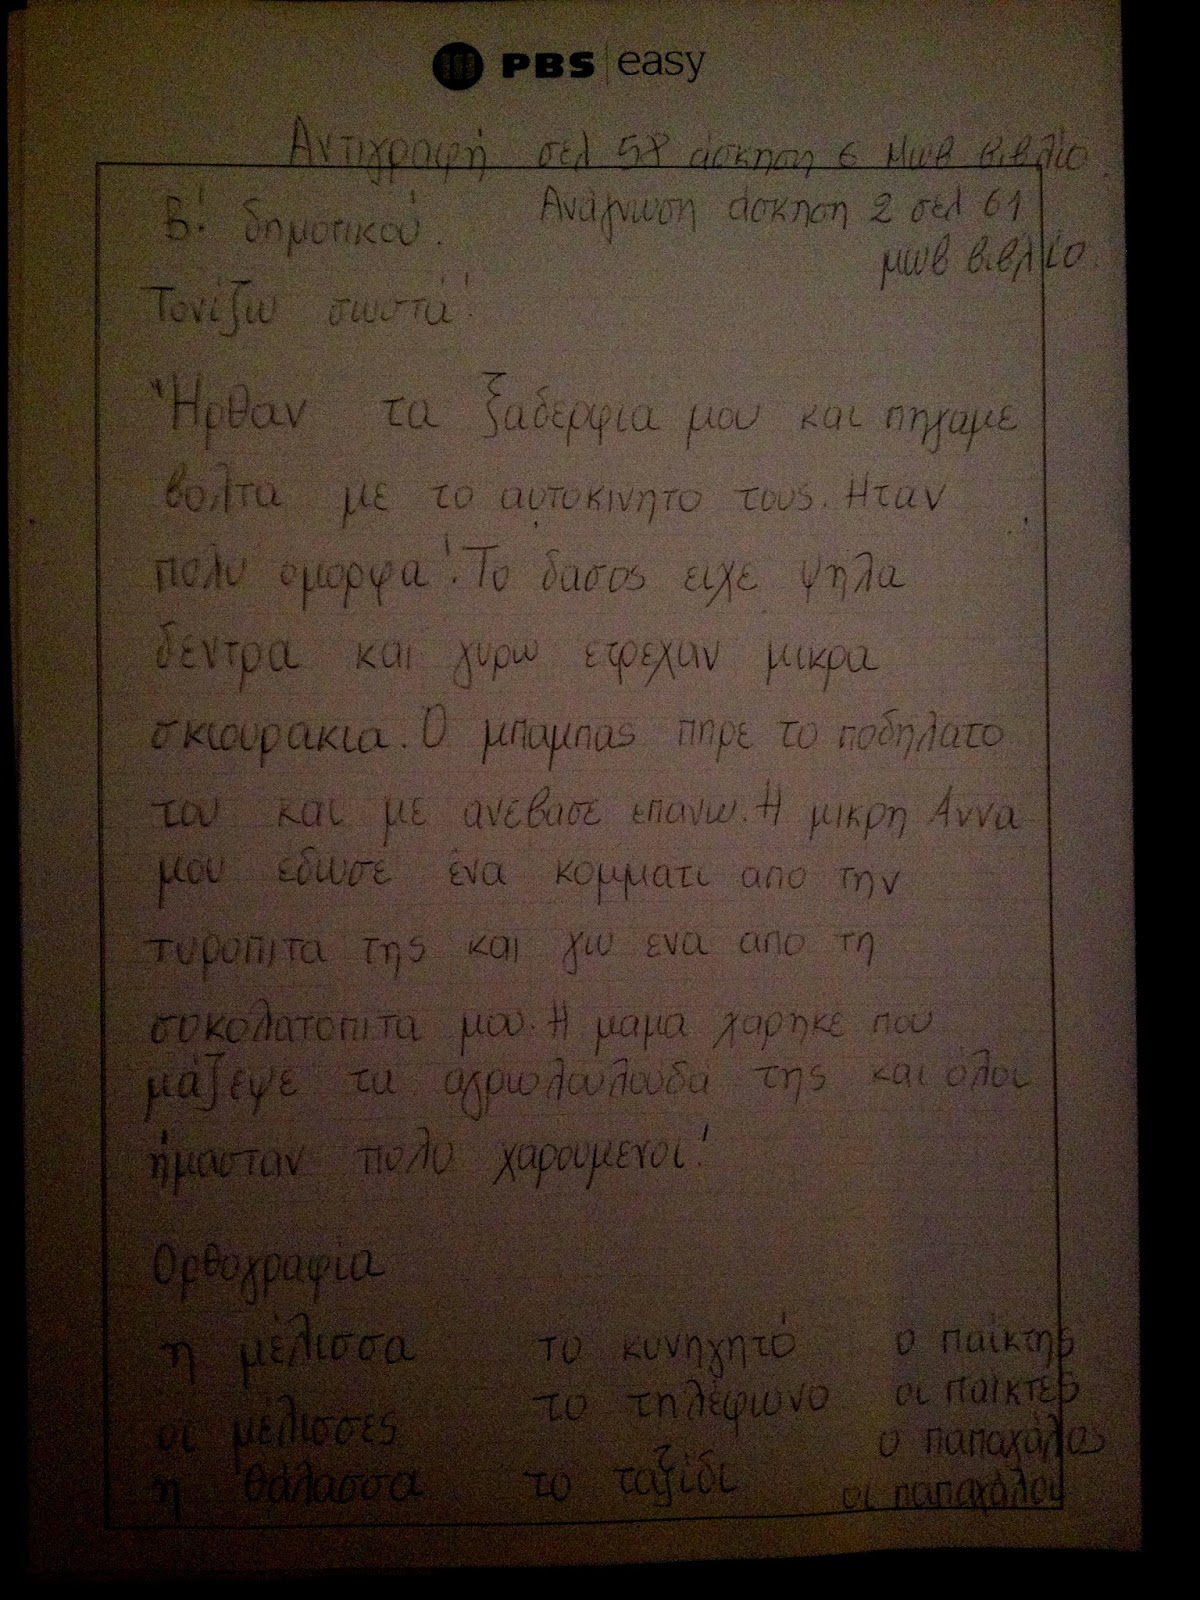 PBS easy
Αντιγραφή σελ 58 άσκηση 6 Μωβ βιβλίο.
Β! δημοτικού. Ανάγνωση άσκηση 2 σελ 61
μωβ βιβλίο.
Τονίζω σωστά!
Ήρθαν τα ξαδερφια μου και πηγαμε
βολτα με το αυτοκινητο τους. Ηταν
πολυ ομορφα! Το δασος ειχε ψηλα
δεντρα και γυρω ετρεχαν μικρα
σκιουρακια. Ο μπαμπας πηρε το ποδηλατο
του και με ανεβασε επανω. Η μικρη Αννα
μου εδωσε ένα κομματι απο την
τυροπιτα της και γω ενα απο τη
σοκολατοπιτα μου. Η μαμα χαρηκε που
μάζεψε τα αγριολουλουδα της και όλοι
ήμασταν πολυ χαρουμενοι!
Ορθογραφία
η μέλισσα το κυνηγητό ο παίκτης
οι μέλισσες το τηλέφωνο οι παίκτες
ο παπαγάλος
η θάλασσα το ταξίδι οι παπαγάλοι